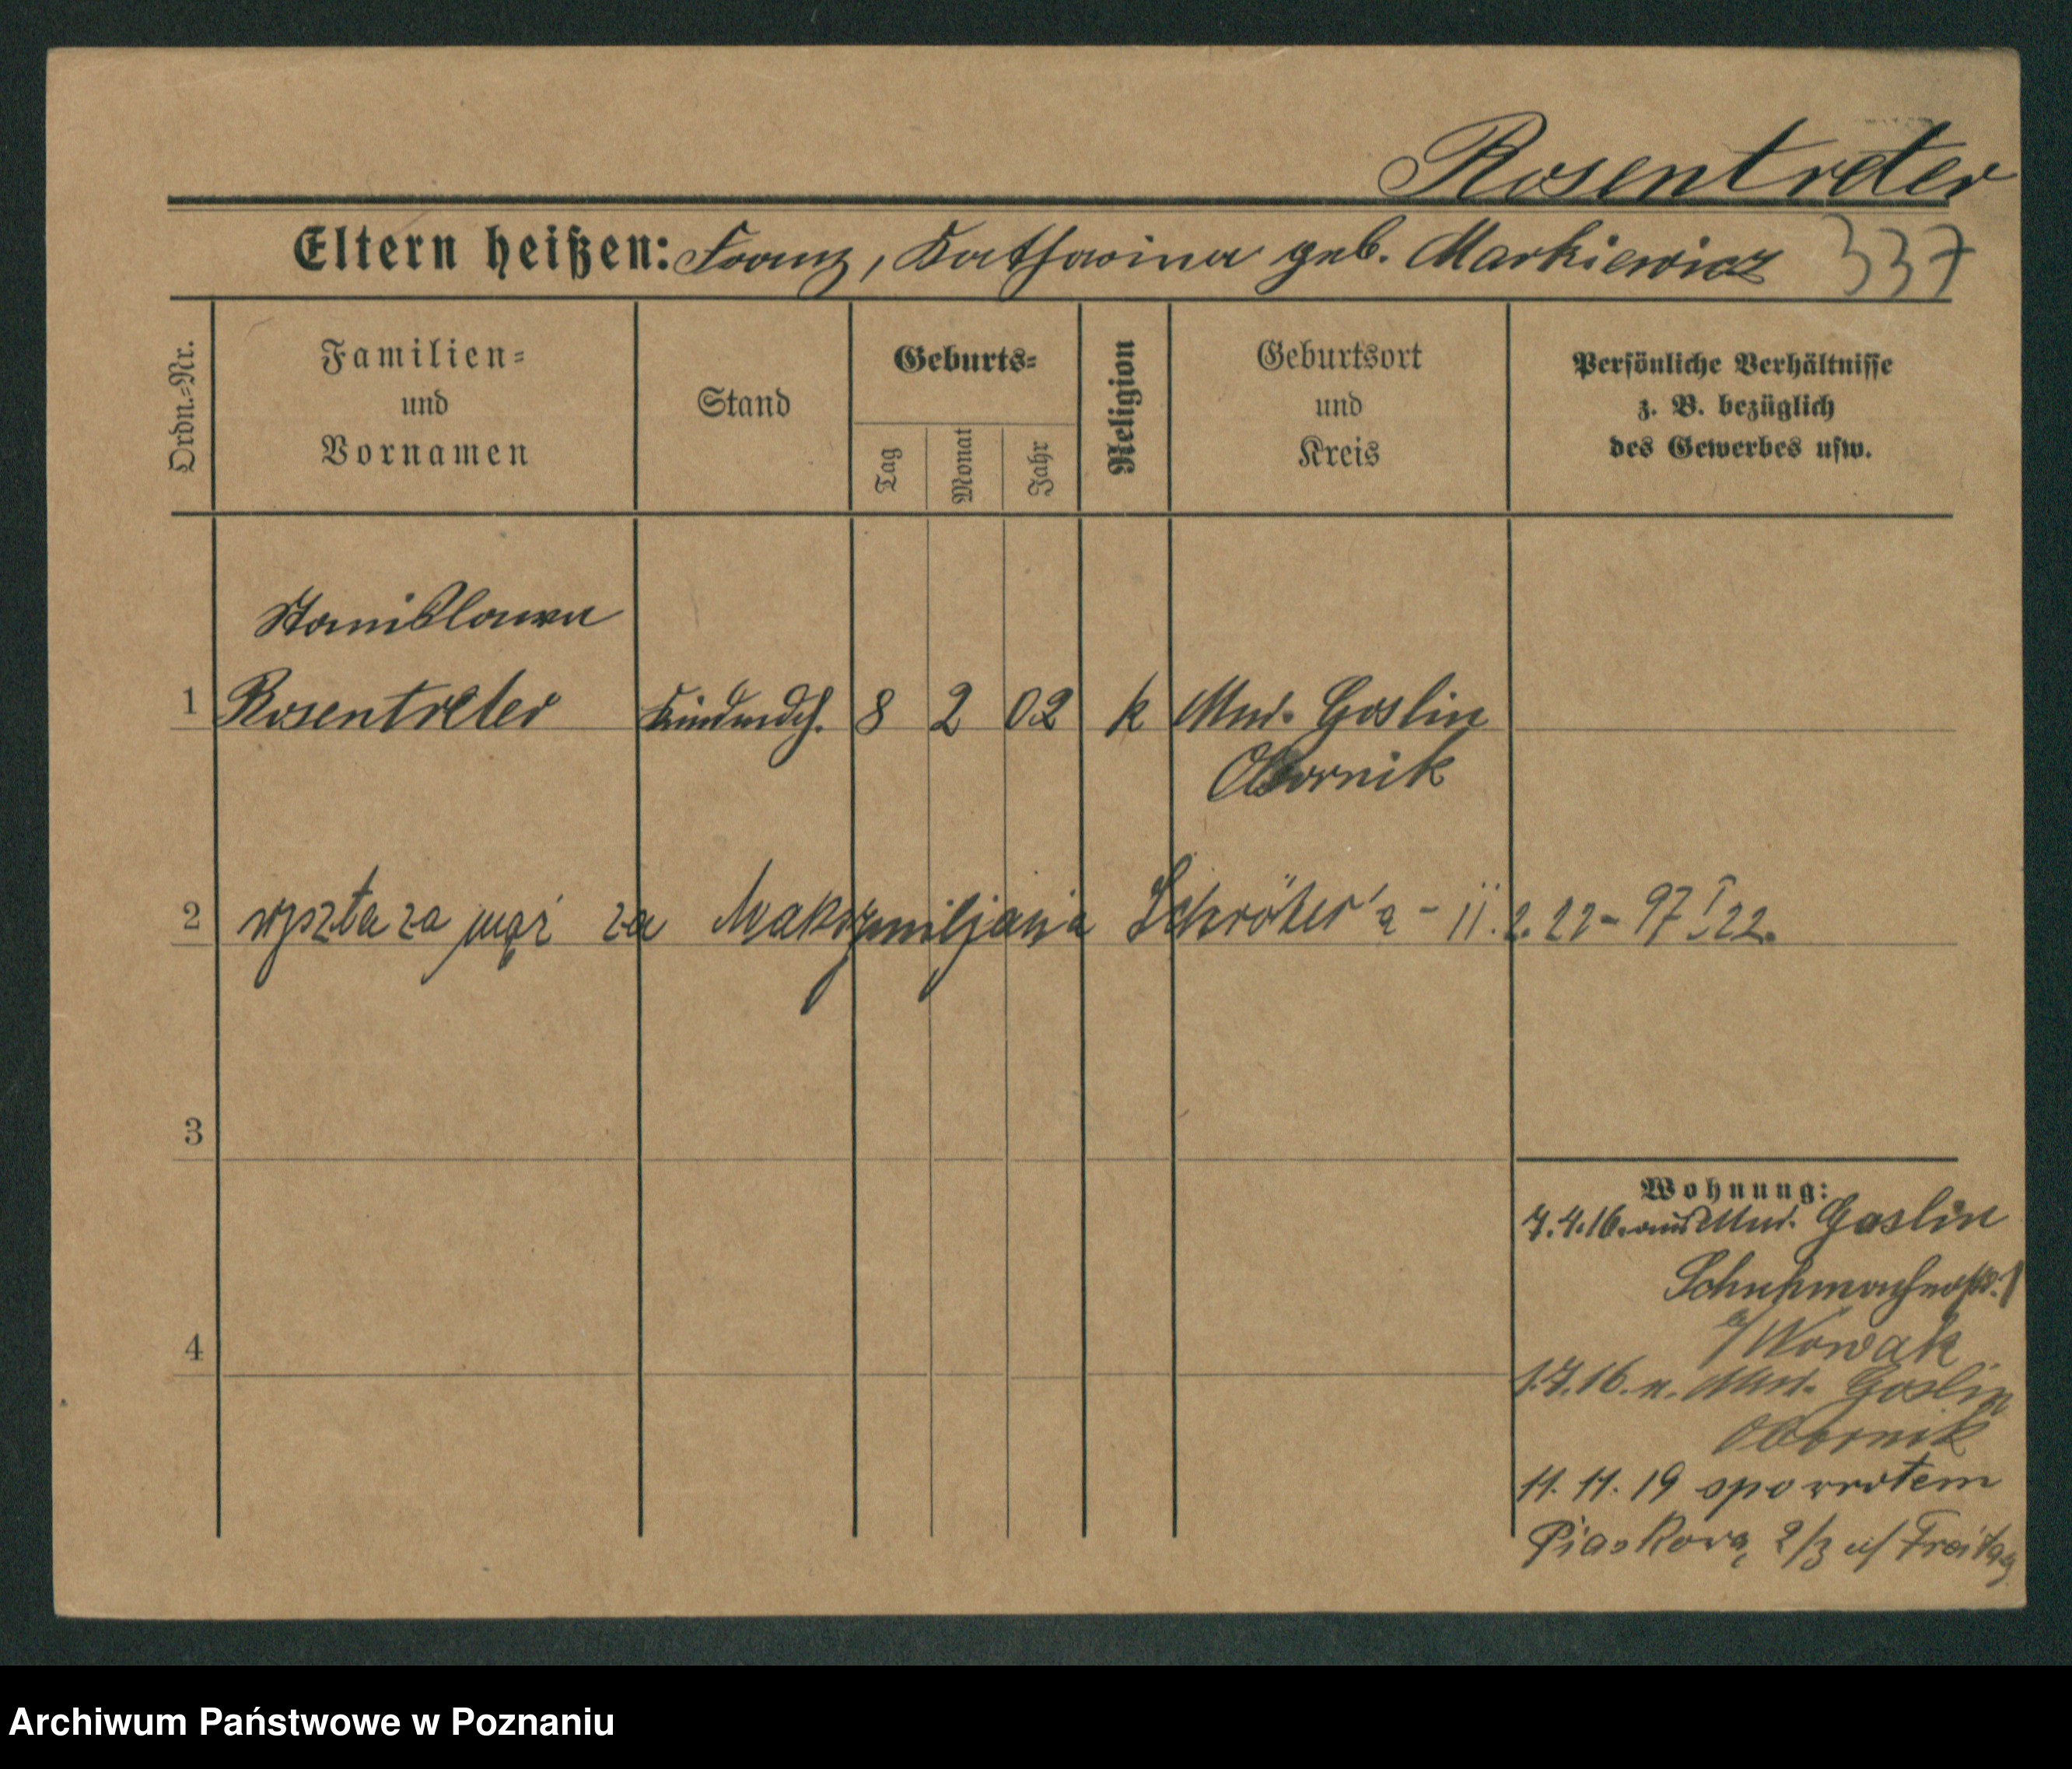 Rosentreter
Eltern heißen: Franz, Katharina geb. Markiewicz 337
Ordn.=Nr.
Familien= und Vornamen
Stand
Geburts=
Tag
Monat
Jahr
Religion
Geburtsort und Kreis
Persönliche Verhältnisse z. B. bezüglich des Gewerbes usw.
Stanislawa
1 Rosentreter Kindmdch. 8 2 02 k Mur. Goslin
Obornik
2 wyszła za mąż za Maksymiljana Schröter'a - 11.2.22 - 97 I 22.
3
Wohnung:
7.4.16. aus Mur. Goslin
Schuhmacherstr. 1
b/ Nowak
4
1.7.16. n. Mur. Goslin
Obornik
11. 11. 19 spowrotem
Piaskowa 2/3 u/ Freitag
Archiwum Państwowe w Poznaniu